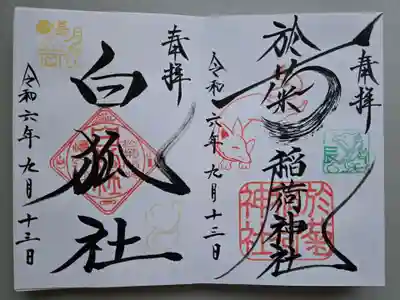 奉拝
於菊稲荷神社
令和六年九月十三日
於菊
稲荷
神社
辰
奉拝
白狐社
令和六年九月十三日